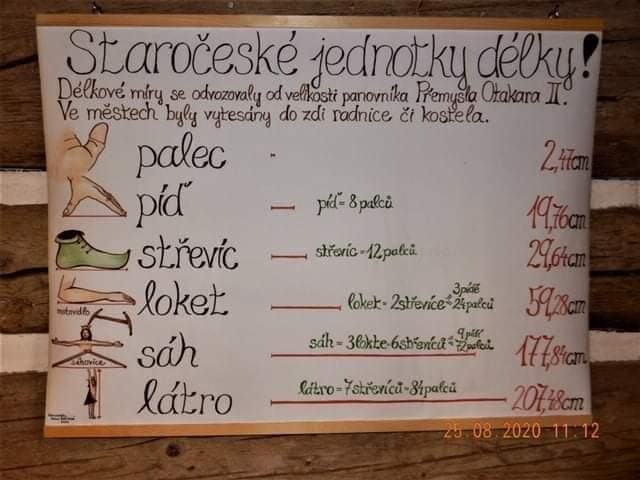 Staročeské jednotky délky!
Délkové míry se odvozovaly od velikosti panovníka Přemysla Otakara II.
Ve městech byly vytesány do zdi radnice či kostela.
palec 2,47cm
píď píď = 8 palců 19,76cm
střevíc střevíc = 12 palců 29,64cm
loket loket = 2 střevíce = 3 pídě = 24 palců 59,28cm
motovidlo
sáhovice
sáh sáh = 3 lokte = 6 střevíců = 9 pídí = 72 palců 177,84cm
látro látro = 7 střevíců = 84 palců 207,48cm
25.08.2020 11:12